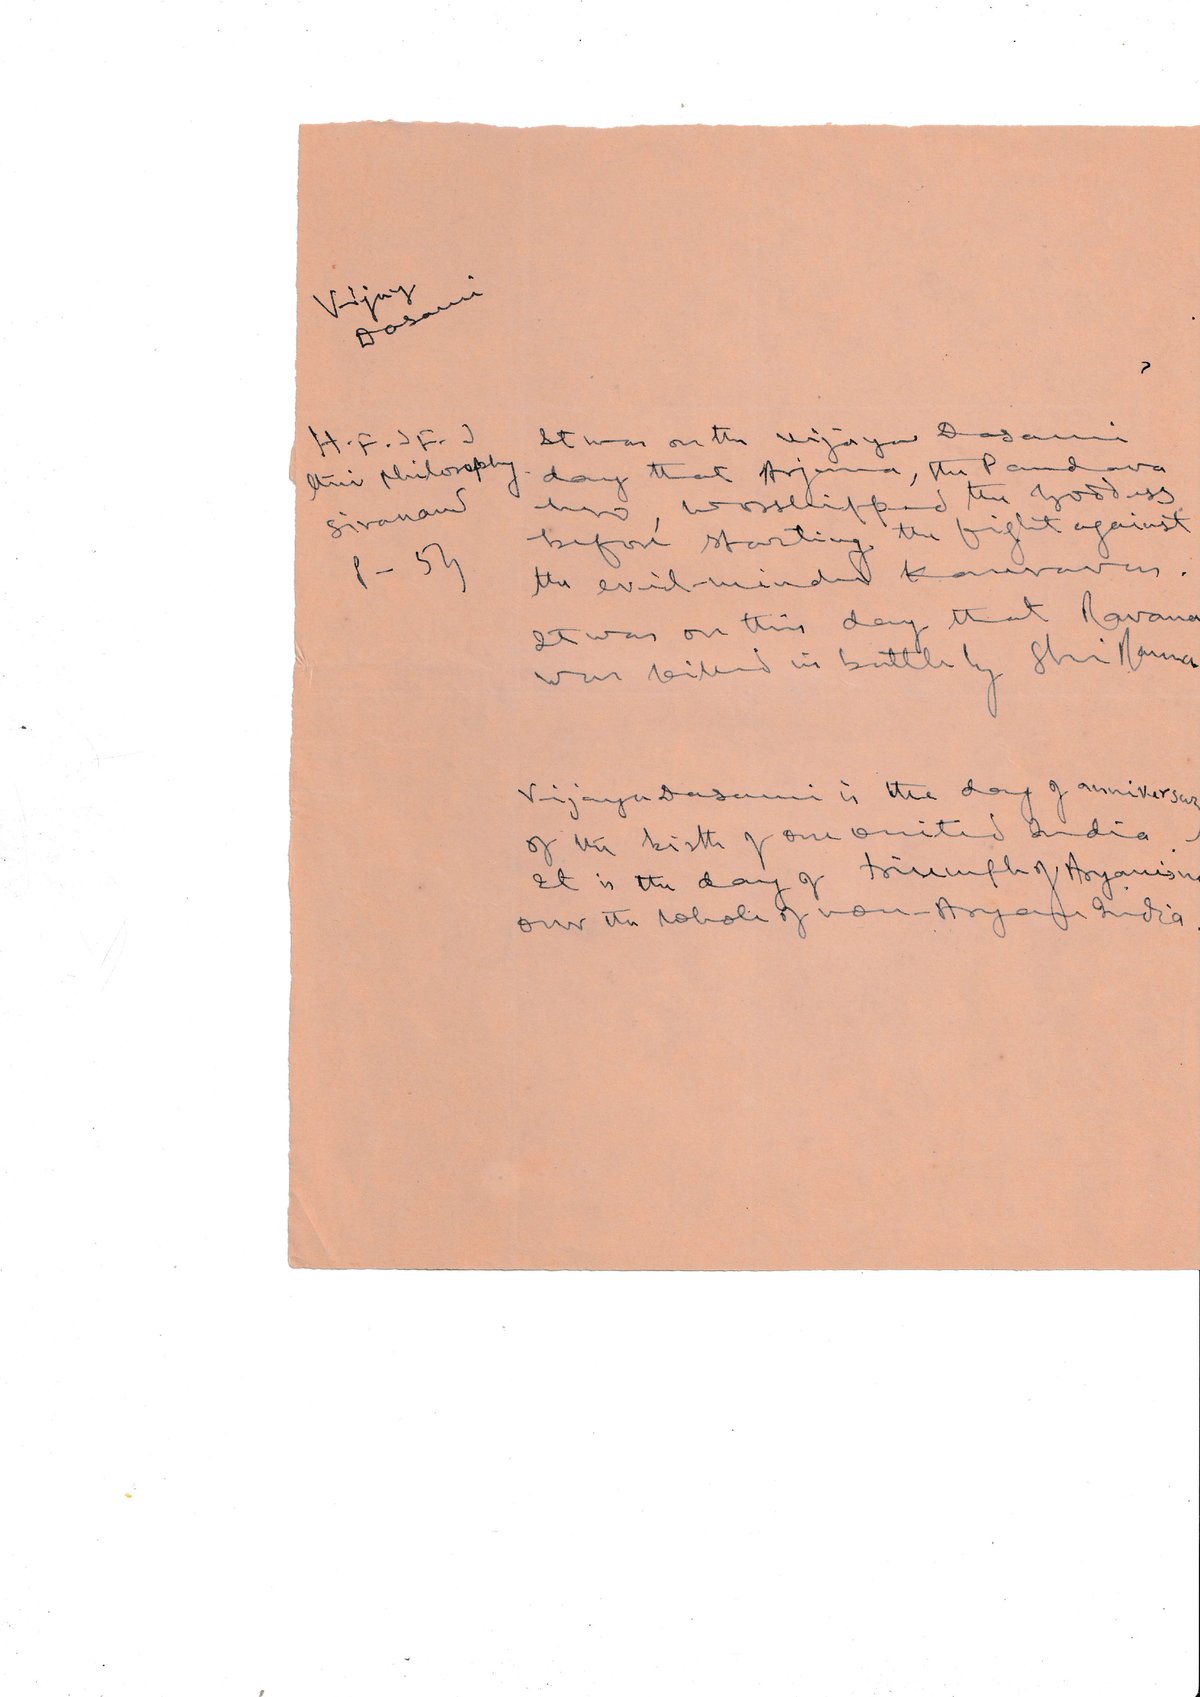 Vijay
Dasami
H.F. & F. &
their philosophy.
Sivanand
P - 54
It was on the Vijaya Dasami
day that Arjuna, the Pandava
hero, worshipped the Goddess
before starting the fight against
the evil-minded Kauravas.
It was on this day that Ravana
was killed in battle by Shri Rama
Vijaya Dasami is the day of anniversar
of the birth of one united India
It is the day of triumph of Aryanism
over the whole of non-Aryan India.